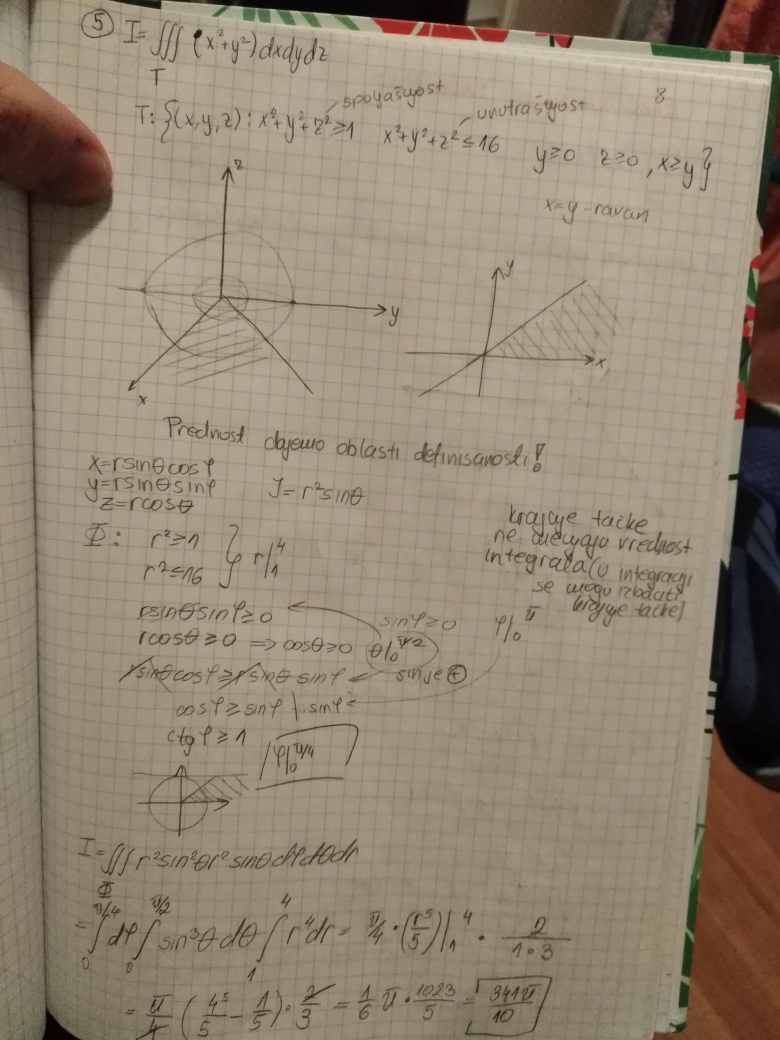 5 I=∭(x²+y²)dxdydz
T
spoljašnjost
unutrašnjost
8
T: {(x,y,z): x²+y²+z²≥1 x²+y²+z²≤16 y≥0 z≥0, x≥y}
x=y-ravan
z
y
x
y
x
Prednost dajemo oblasti definisanosti!
x=rsinθcosφ
y=rsinθsinφ J=r²sinθ
z=rcosθ
Φ: r²≥1
r²≤16 } r|₁⁴
krajnje tačke
ne menjaju vrednost
integrala(u integraciji
se mogu izbaciti
krajnje tačke)
rsinθsinφ≥0 sinφ≥0 φ|₀^π
rcosθ≥0 ⇒cosθ≥0 θ|₀^π/2
rsinθcosφ≥rsinθ sinφ sin je ⊕
cosφ≥sinφ |:sinφ
ctgφ≥1
φ|₀^π/4
I=∭r²sin²θr²sinθdφdθdr
Φ
=∫₀^π/4 dφ ∫₀^π/2 sin³θdθ ∫₁⁴ r⁴dr= π/4·(r⁵/5)|₁⁴ · 2/1·3
= π/4 (4⁵/5 - 1/5)· 2/3 = 1/6 π· 1023/5 = 341π/10